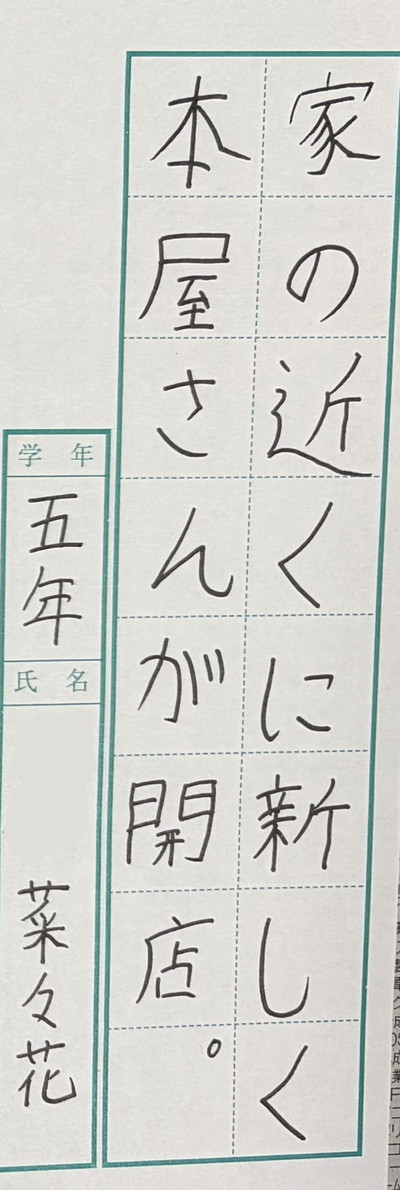 家の近くに新しく
本屋さんが開店。
学年
五年
氏名
菜々花